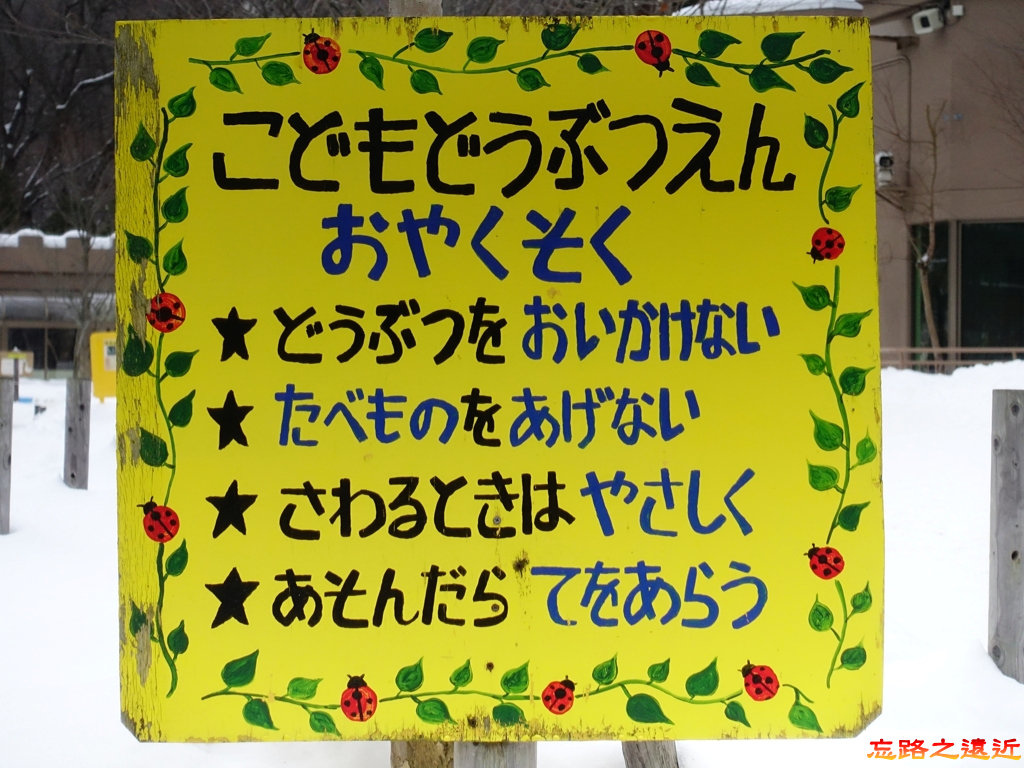 こどもどうぶつえん
おやくそく
★どうぶつをおいかけない
★たべものをあげない
★さわるときはやさしく
★あそんだらてをあらう
忘路之遠近